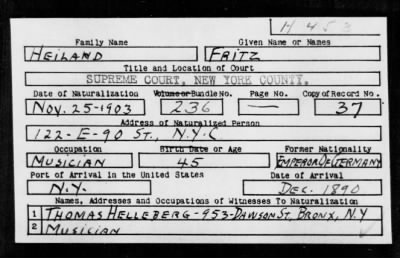 H 453
Family Name Given Name or Names
HEILAND FRITZ
Title and Location of Court
SUPREME COURT, NEW YORK COUNTY.
Date of Naturalization Volume or Bundle No. Page No. Copy of Record No.
NOV. 25-1903 236 — 37
Address of Naturalized Person
122-E-90 ST., N.Y.C
Occupation Birth Date or Age Former Nationality
MUSICIAN 45 EMPEROR OF GERMANY
Port of Arrival in the United States Date of Arrival
N.Y. DEC. 1890
Names, Addresses and Occupations of Witnesses To Naturalization
1 THOMAS HELLEBERG-953-DAWSON ST, BRONX, N.Y
2 MUSICIAN